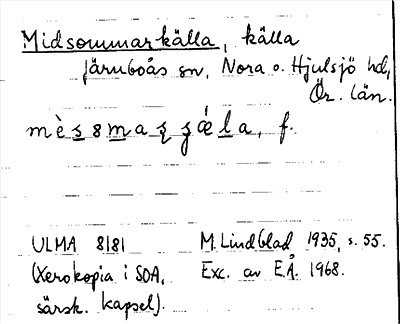 Midsommarkälla, källa
Järnboås sn, Nora o. Hjulsjö hd,
Ör. län.
mè̀s8maʂʂǽla, f.
ULMA 8181 M. Lindblad 1935, s. 55.
(Xerokopia i SOA, Exc. av E.Å. 1968.
särsk. kapsel).